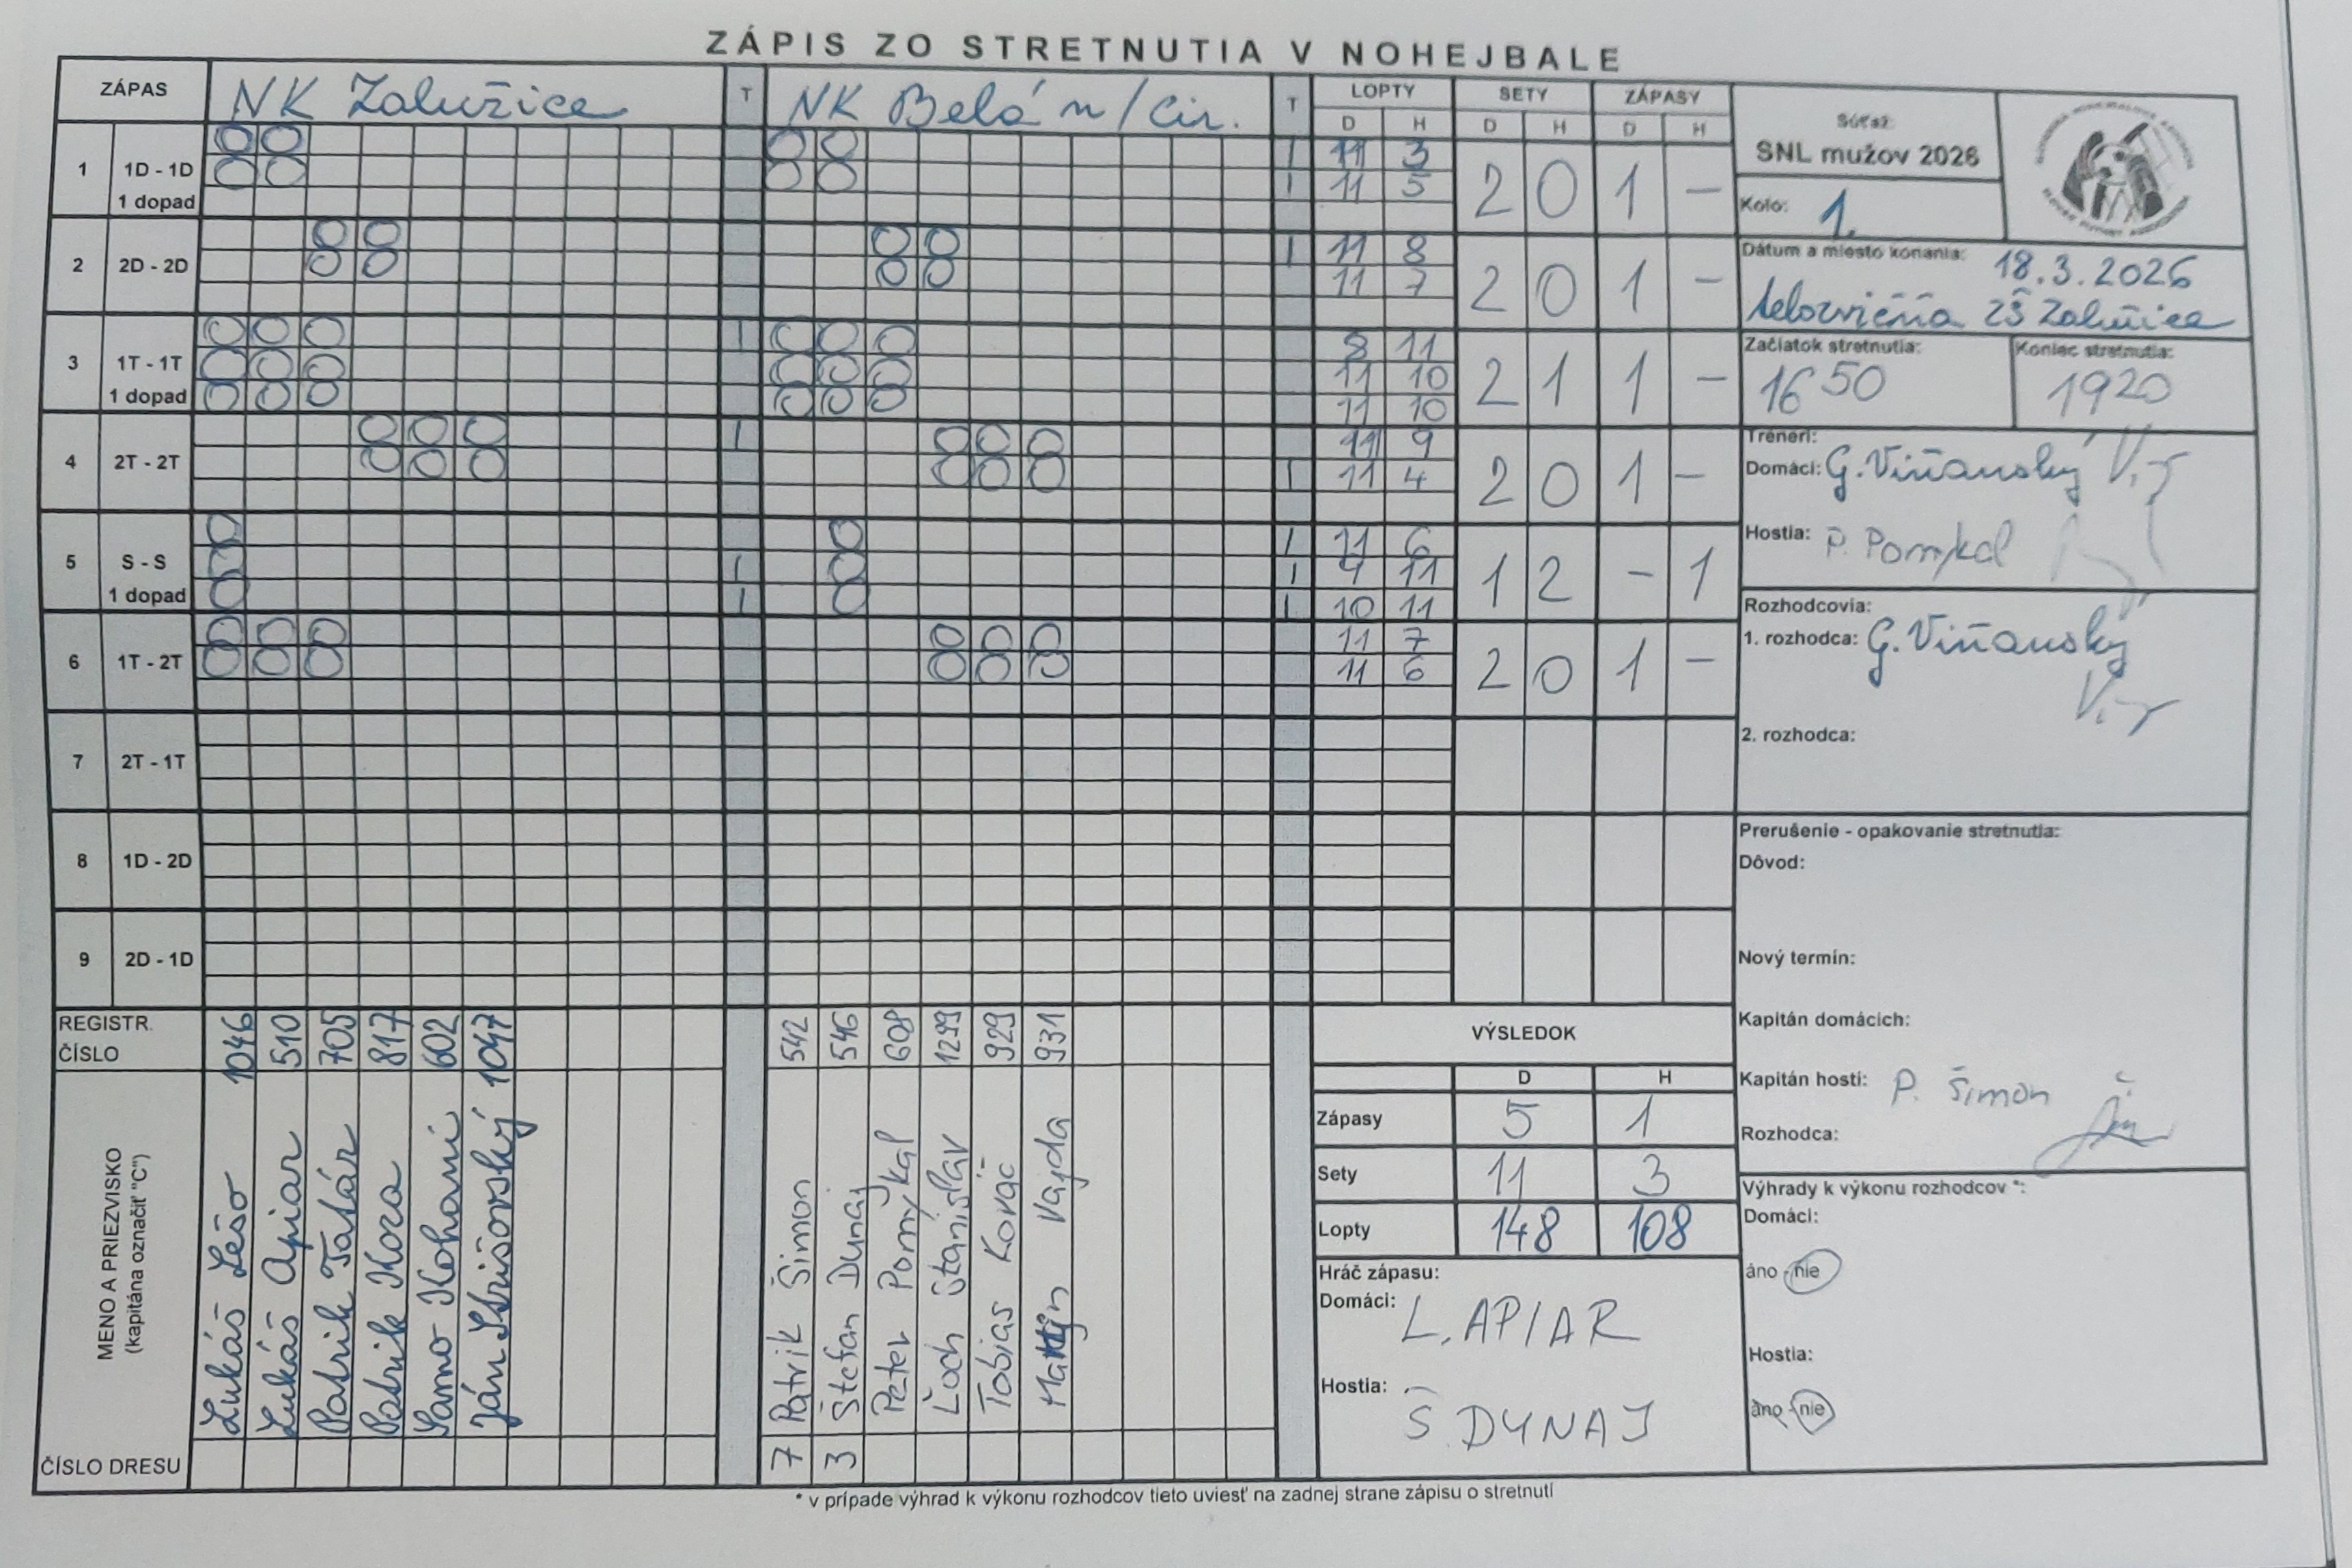 ZÁPIS ZO STRETNUTIA V NOHEJBALE
ZÁPAS NK Zalužice T NK Belá n/Cir. T LOPTY SETY ZÁPASY
D H D H D H
1 1D - 1D 1 dopad
11 3
11 5
2 0 1 -
2 2D - 2D
11 8
11 7
2 0 1 -
3 1T - 1T 1 dopad
8 11
11 10
11 10
2 1 1 -
4 2T - 2T
11 9
11 4
2 0 1 -
5 S - S 1 dopad
11 6
4 11
10 11
1 2 - 1
6 1T - 2T
11 7
11 6
2 0 1 -
7 2T - 1T
8 1D - 2D
9 2D - 1D
REGISTR. ČÍSLO
1046 510 705 817 602 1047
542 546 608 1299 929 931
MENO A PRIEZVISKO
(kapitána označiť "C")
Lukáš Lešo
Lukáš Apiar
Patrik Tatár
Patrik Koza
Samo Kohani
Ján
Patrik Šimon
Štefan Dunaj
Peter Pomykal
Stanislav
Tobias Kováč
Martin Vajda
ČÍSLO DRESU 7 3
VÝSLEDOK
D H
Zápasy 5 1
Sety 11 3
Lopty 148 108
Hráč zápasu:
Domáci: L. APIAR
Hostia: Š. DYNAJ
Súťaž:
SNL mužov 2026
Kolo: 1.
Dátum a miesto konania: 18.3.2026
telozvičňa ZŠ Zalužice
Začiatok stretnutia: 16 50
Koniec stretnutia: 1920
Tréneri:
Domáci: G. Viňanský
Hostia: P. Pomykal
Rozhodcovia:
1. rozhodca: G. Viňanský
2. rozhodca:
Prerušenie - opakovanie stretnutia:
Dôvod:
Nový termín:
Kapitán domácich:
Kapitán hostí: P. Šimon
Rozhodca:
Výhrady k výkonu rozhodcov *:
Domáci:
áno - nie
Hostia:
áno - nie
* v prípade výhrad k výkonu rozhodcov tieto uviesť na zadnej strane zápisu o stretnutí